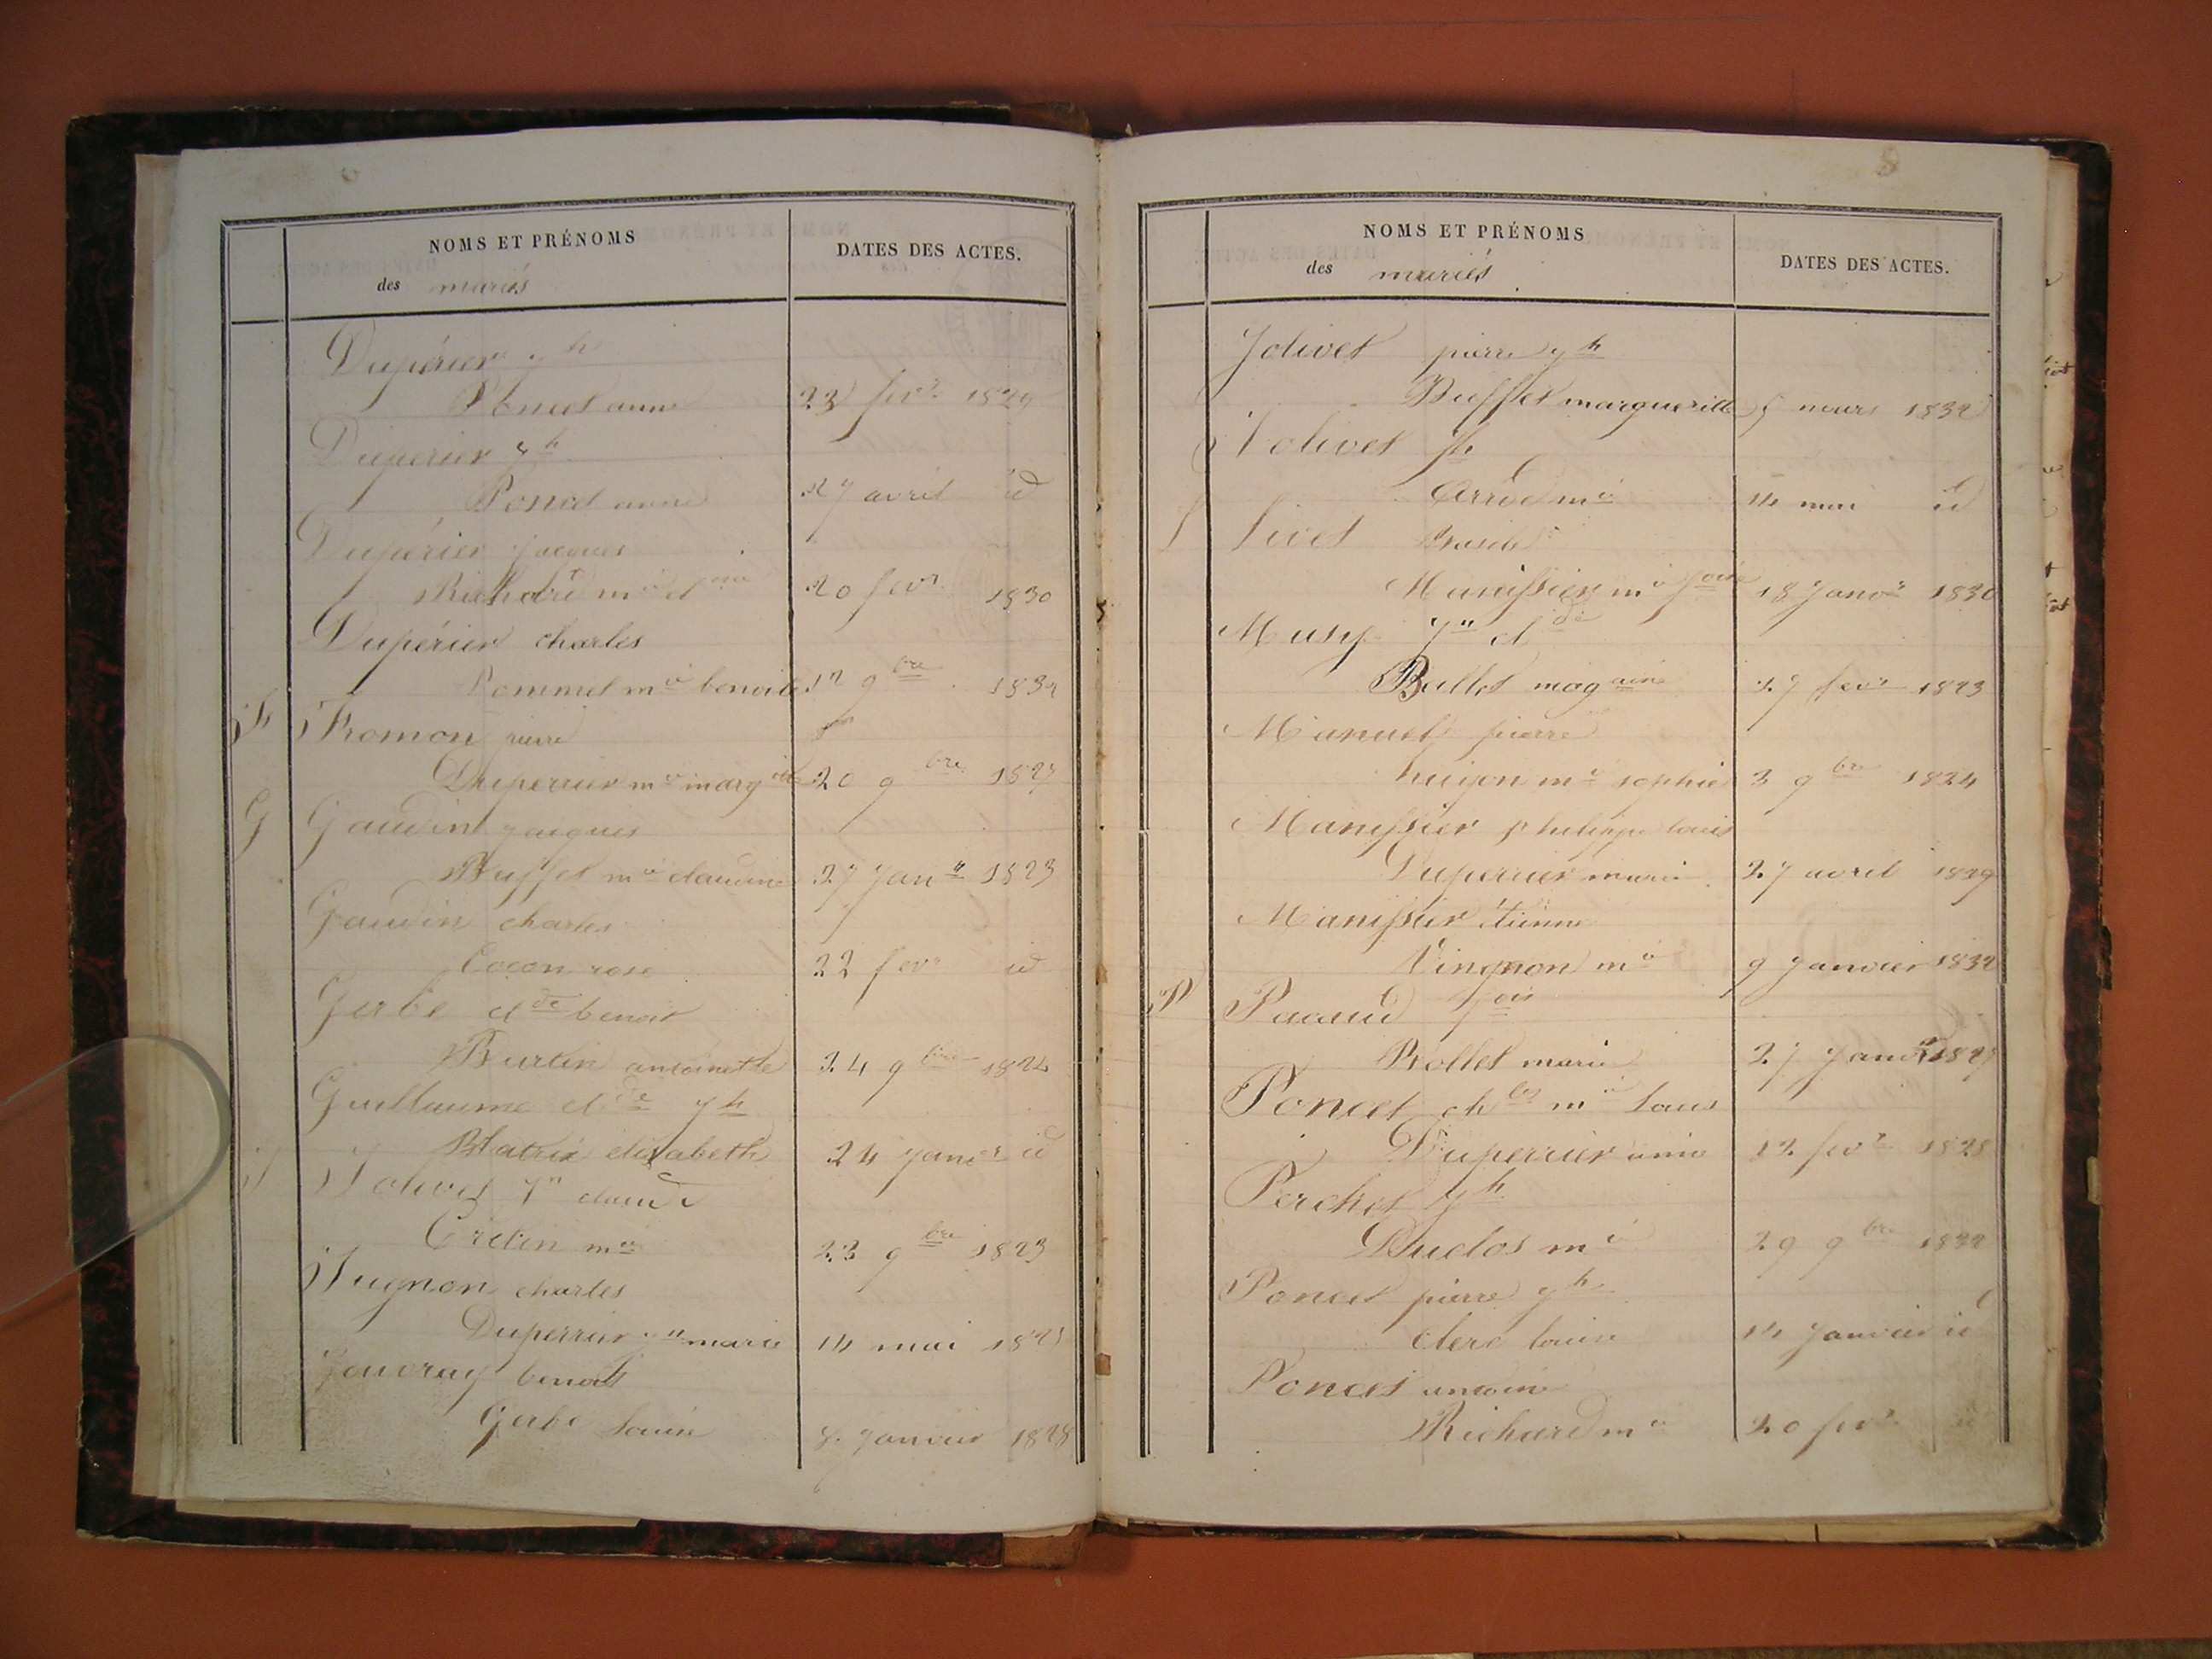 NOMS ET PRÉNOMS
des mariés
DATES DES ACTES.
Dupérier jh
Poncet anne 23 fevr 1829
Duperier jh
Poncet anne 27 avril id
Dupérier jacques
Richard mie 20 fevr 1830
Dupérier charles
Pommel mie benoite 12 9bre 1832
F Fromon pierre
Duperrier mie margite 20 9bre 1827
G Gaudin jacques
Buffet mie claudine 27 janr 1823
Gaudin charles
Cocon rose 22 fevr id
Gerbe clde benoit
Burtin antoinette 24 9bre 1824
Guillaume clde jh
Blatrix elisabeth 24 janvr id
J Jolivet jn claude
Crétin mie 23 9bre 1823
Jugnon charles
Duperrier jn marie 14 mai 1825
Jouvray benoit
Gerbe Louise janvier 1828
NOMS ET PRÉNOMS
des mariés
DATES DES ACTES.
Jolivet pierre jh
Buffet marguerite 5 mars 1832
Jolivet jh
mie 14 mai id
L Livet
Manissier mie foise 18 janvr 1830
Musy jn clde
Bullet 27 fevr 1823
Manuel pierre
huyon mie sophie 3 9bre 1824
Manissier philippe louis
Duperrier marie 27 avril 1829
Manissier étienne
Vingnon mie 9 janvier 1832
P Pacaud fois
Rollet marie 27 janvr 1827
Poncet chles mie Louis
Duperrier anne 12 fevr 1828
Perchet jh
Duclos mie 29 9bre 1832
Poncet pierre jh
clerc louise 14 janvier id
Poncet antoine
Richard mie 20 fevr id